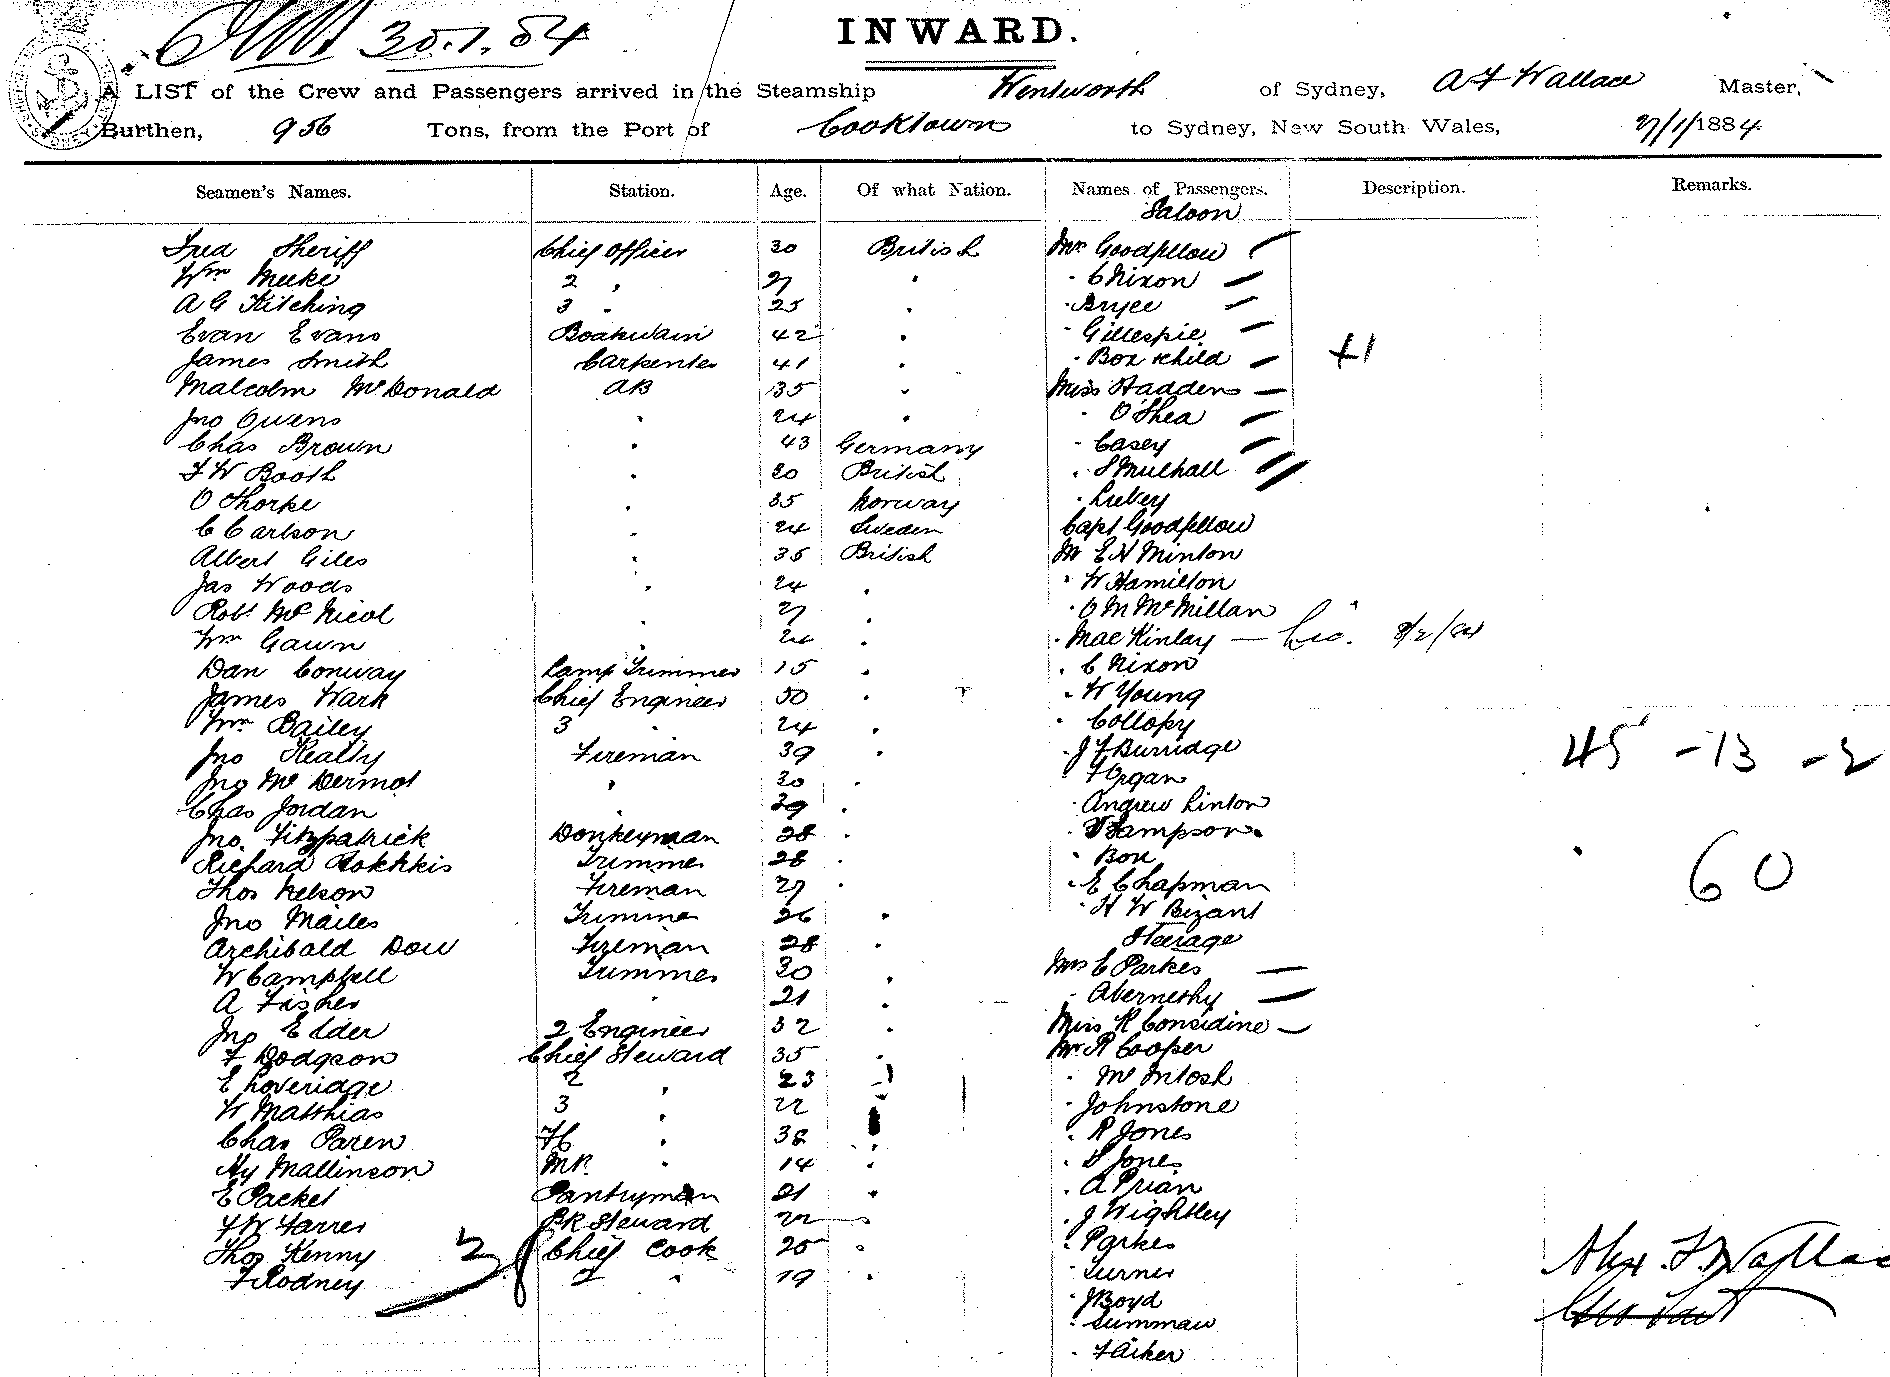 30.1.84
INWARD.
A LIST of the Crew and Passengers arrived in the Steamship Wentworth of Sydney, A F Wallace Master,
Burthen, 956 Tons, from the Port of Cooktown to Sydney, New South Wales, 27/1/1884
Seamen's Names. Station. Age. Of what Nation. Names of Passengers. Description. Remarks.
Saloon
Fred Sheriff Chief Officer 30 British Mrs Goodfellow
Wm Meeke 2 " 27 " " C Nixon
A G Kitching 3 " 25 " " Bryce
Evan Evans Boatswain 42 " " Gillespie
James Smith Carpenter 41 " " Box & child +1
Malcolm McDonald AB 35 " Miss Haddens
Jno Owens " 24 " " O'Shea
Chas Brown " 43 Germany " Casey
F W Booth " 20 British " S Mulhall
O Thorke " 35 Norway " Liebey
C Carlson " 24 Sweden Capt Goodfellow
Albert Giles " 35 British Mr E H Minton
Jas Woods " 24 " " W Hamilton
Robt McNicol " 27 " " O M McMillan
Wm Gawn " 24 " " MacKinlay — Lic. 8/2/84
Dan Conway Lamp Trimmer 15 " " C Nixon
James Wark Chief Engineer 50 " " W Young
Wm Bailey 3 " 24 " " Collopy
Jno Healty Fireman 39 " " J F Burridge
Jno McDermot " 30 " " F Organ 45 - 13 - 2
Chas Jordan " 39 " " Andrew Linton
Jno. Fitzpatrick Donkeyman 28 " " Sampson
Richard Trimmer 28 " " Box 60
Thos Nelson Fireman 27 " " E Chapman
Jno Mailes Trimmer 26 " " H W Bizant
Archibald Dow Fireman 28 " Steerage
W Campbell Trimmer 30 " Mrs E Parkes
A Fisher " 21 " " Abernethy
Jno Elder 2 Engineer 32 " Miss K Considine
F Dodgson Chief Steward 35 " Mr R Cooper
E Loveridge 2 " 23 " " McIntosh
W Matthias 3 " 22 " " Johnstone
Chas Paren " 38 " " R Jones
Hy Mallinson " 14 " " S Jones
E Packet Pantryman 21 " " A Prian
F W Farrer Bk Steward 22 " " J Wightley
Thos Kenny Chief Cook 25 " " Parkes
F Rodney 2 " 19 " " Turner
38
" J Boyd
" Summan
" F Aiken
Alex. F. Wallace